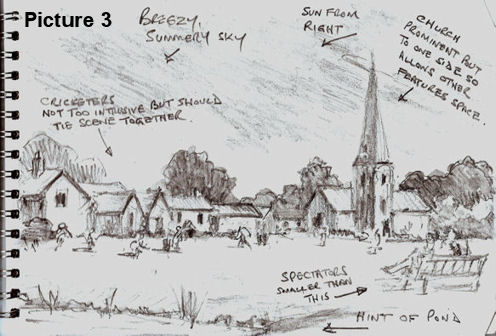 Picture 3
BREEZY,
SUMMERY SKY
SUN FROM
RIGHT
CHURCH
PROMINENT BUT
TO ONE SIDE SO
ALLOWS OTHER
FEATURES SPACE.
CRICKETERS
NOT TOO INTRUSIVE BUT SHOULD
TIE SCENE TOGETHER
SPECTATORS
SMALLER THAN
THIS
HINT OF POND